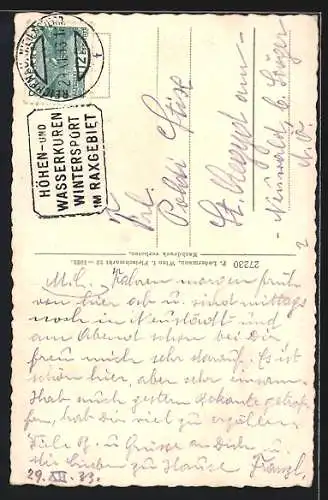 REICHENAU
HÖHEN- UND
WASSERKUREN
WINTERSPORT
IM RAXGEBIET
Frl.
Poldi
St. Aegyd am
Neuwald
N. Ö.
27230 P. Ledermann, Wien I. Fleischmarkt 12 — 1932.
Nachdruck verboten.
Fahren morgen früh
von hier ab u. sind mittags
noch in Neustadt und
am Abend schon bei Dir
freu mich sehr darauf. Es ist
schön hier, aber sehr einsam.
Hab noch gestern Bekannte getrof-
fen, hab Dir viel zu erzählen.
Viele B. u. Grüsse an Dich u.
die Lieben zu Hause Franzl.
29. XII. 33.